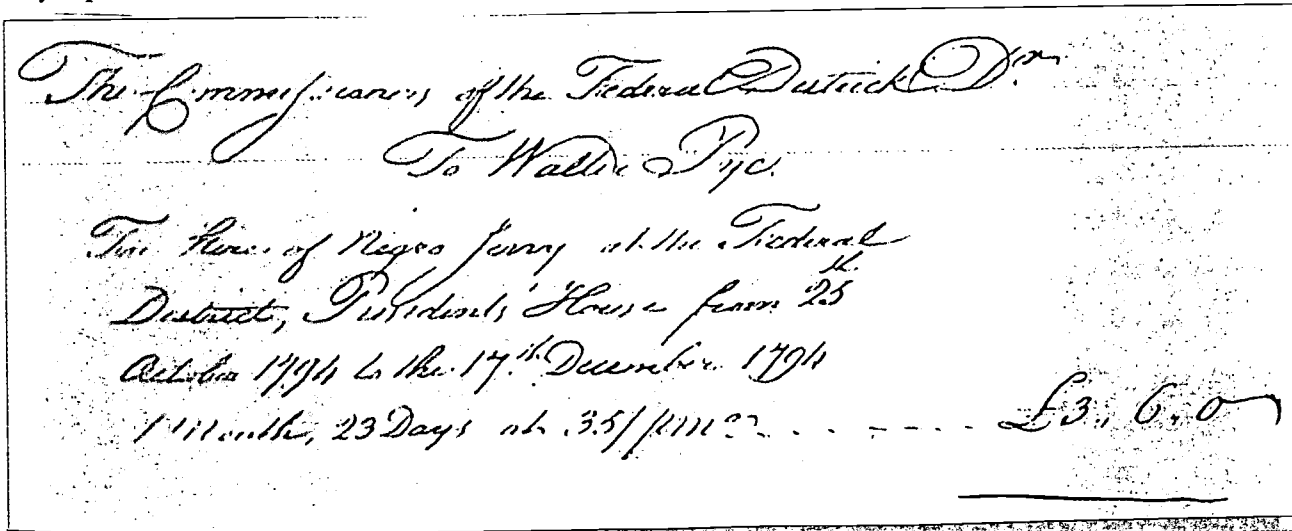 The Commissioners of the Federal District Dr
To Walter Pye
For hire of Negro Jerry at the Federal
District, Presidents House from 25th
October 1794 to the 17th December 1794
1 Month, 23 Days at 35/ pr mo £3. 6. 0